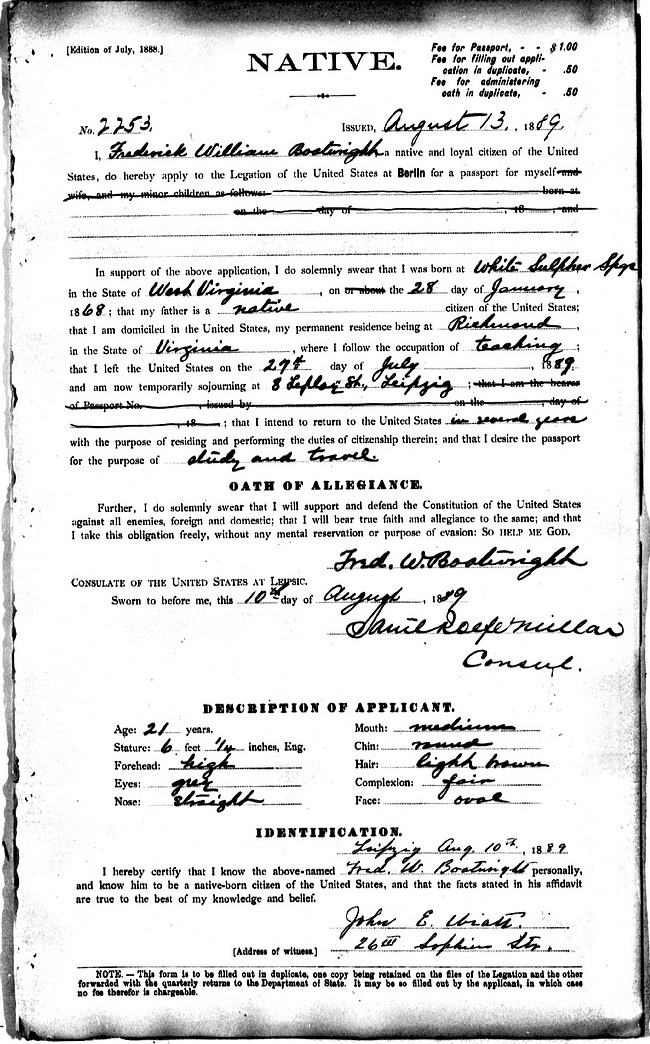 [Edition of July, 1888.]
NATIVE.
Fee for Passport, - - $1.00
Fee for filling out appli-
cation in duplicate, - .50
Fee for administering
oath in duplicate, - .50
No. 2253. ISSUED, August 13, 1889
I, Frederick William Boatwright a native and loyal citizen of the United
States, do hereby apply to the Legation of the United States at Berlin for a passport for myself and
wife, and my minor children as follows: born at
on the day of , 18 , and
In support of the above application, I do solemnly swear that I was born at White Sulphur Spgs
in the State of West Virginia , on or about the 28 day of January ,
1868; that my father is a native citizen of the United States;
that I am domiciled in the United States, my permanent residence being at Richmond ,
in the State of Virginia , where I follow the occupation of teaching ;
that I left the United States on the 27th day of July , 1889
and am now temporarily sojourning at 8 St., Leipzig ; that I am the bearer
of Passport No. , issued by on the , day of
, 18 ; that I intend to return to the United States in several years
with the purpose of residing and performing the duties of citizenship therein; and that I desire the passport
for the purpose of study and travel.
OATH OF ALLEGIANCE.
Further, I do solemnly swear that I will support and defend the Constitution of the United States
against all enemies, foreign and domestic; that I will bear true faith and allegiance to the same; and that
I take this obligation freely, without any mental reservation or purpose of evasion: SO HELP ME GOD.
Fred. W. Boatwright
CONSULATE OF THE UNITED STATES AT LEIPSIC.
Sworn to before me, this 10th day of August , 1889
Saml Rolfe Millar
Consul.
DESCRIPTION OF APPLICANT.
Age: 21 years. Mouth: medium
Stature: 6 feet 1/4 inches, Eng. Chin: round
Forehead: high Hair: light brown
Eyes: grey Complexion: fair
Nose: straight Face: oval
IDENTIFICATION.
Leipzig Aug. 10th, 1889
I hereby certify that I know the above-named Fred. W. Boatwright personally,
and know him to be a native-born citizen of the United States, and that the facts stated in his affidavit
are true to the best of my knowledge and belief.
John E.
[Address of witness.] 26III Str.
NOTE. — This form is to be filled out in duplicate, one copy being retained on the files of the Legation and the other
forwarded with the quarterly returns to the Department of State. It may be so filled out by the applicant, in which case
no fee therefor is chargeable.